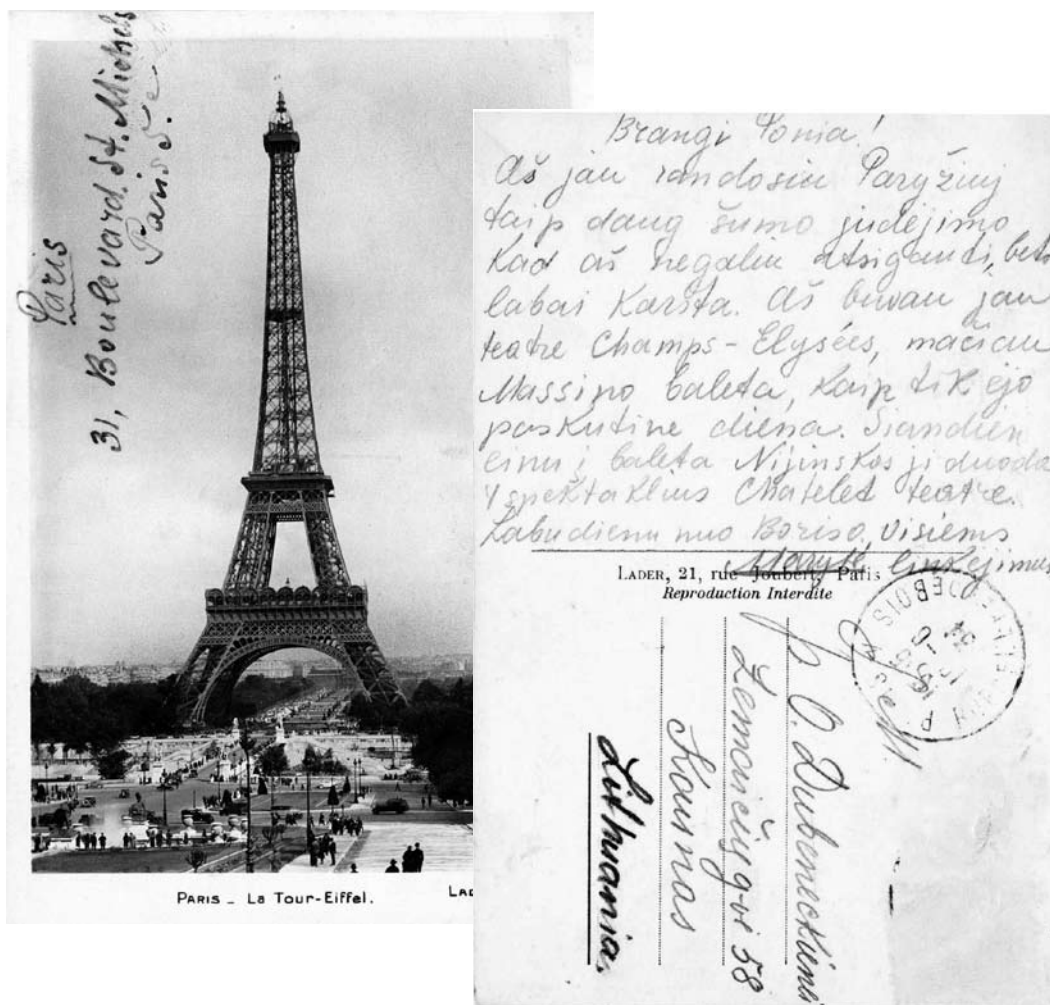 Paris
31, Boulevard St. Michel
Paris 5e
PARIS _ La Tour-Eiffel.
LAD
Brangi Ponia!
Aš jau randosiu Paryžiuj
taip daug šumo judėjimo
kad aš negaliu atsigauti, bet
labai Karšta. Aš buvau jau
teatre Champs-Elysées, mačiau
Massino baleta, Kaip tik ėjo
paskutinė diena. Šiandien
einu į baleta Nijinskos ji duoda
4 spektaklius Chatelet teatre.
Labudienu nuo Boriso, visiems
Marytė linkėjimus
LADER, 21, rue Joubert, Paris
Reproduction Interdite
O. Dubeneckienė
Žemaičių g-vė 58
Kaunas
Lithuania.